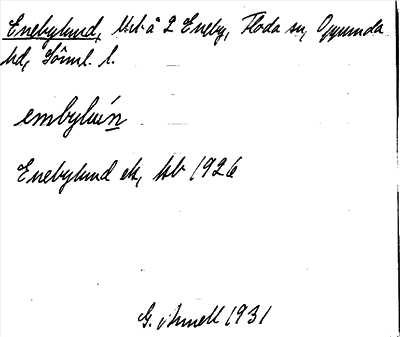 Enebylund, Utt. å 2 Eneby, Floda sn, Oppunda
hd, Sörml. l.
embylún
Enebylund ek, kb 1926
G. Arnell 1931